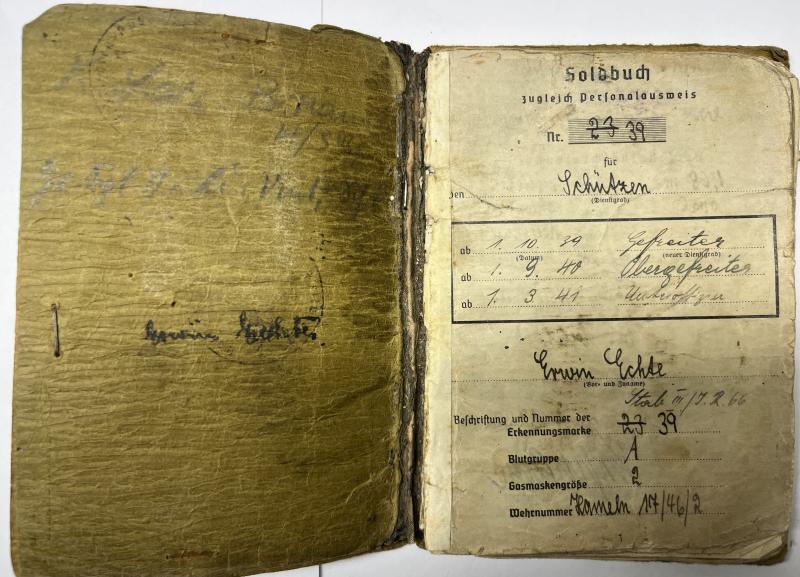 Erwin Echte
Soldbuch
zugleich Personalausweis
Nr. 23 39
für
den Schützen
(Dienstgrad)
ab 1. 10. 39 Gefreiter
(Datum) (neuer Dienstgrad)
ab 1. 9. 40 Obergefreiter
ab 1. 3. 41 Unteroffizier
Erwin Echte
(Vor- und Zuname)
Stab III/J.R. 66
Beschriftung und Nummer der
Erkennungsmarke 23 39
Blutgruppe A
Gasmaskengröße 2
Wehrnummer Hameln 17/46/2